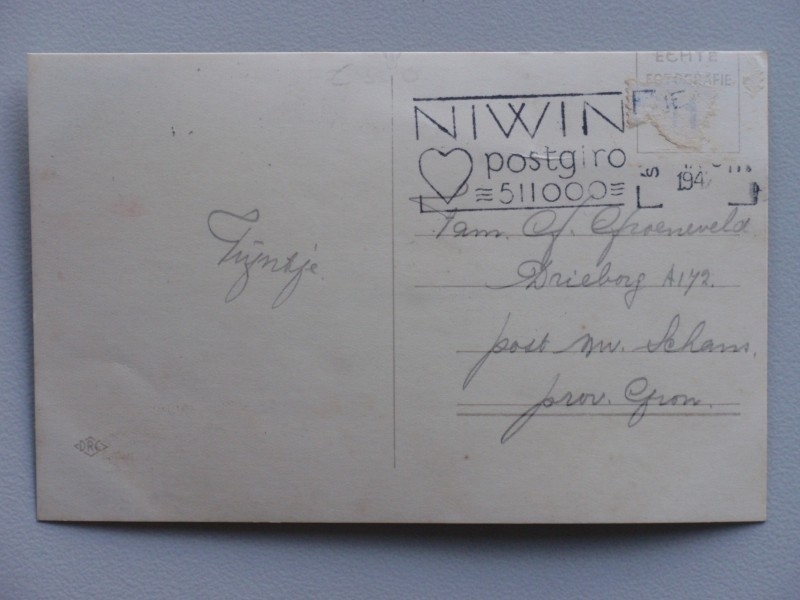 ECHTE
FOTOGRAFIE
NIWIN
postgiro
511000
194
Tijntje
Fam. G. Groeneveld
Drieborg A172.
post nw. Schans.
prov. Gron.
DRC